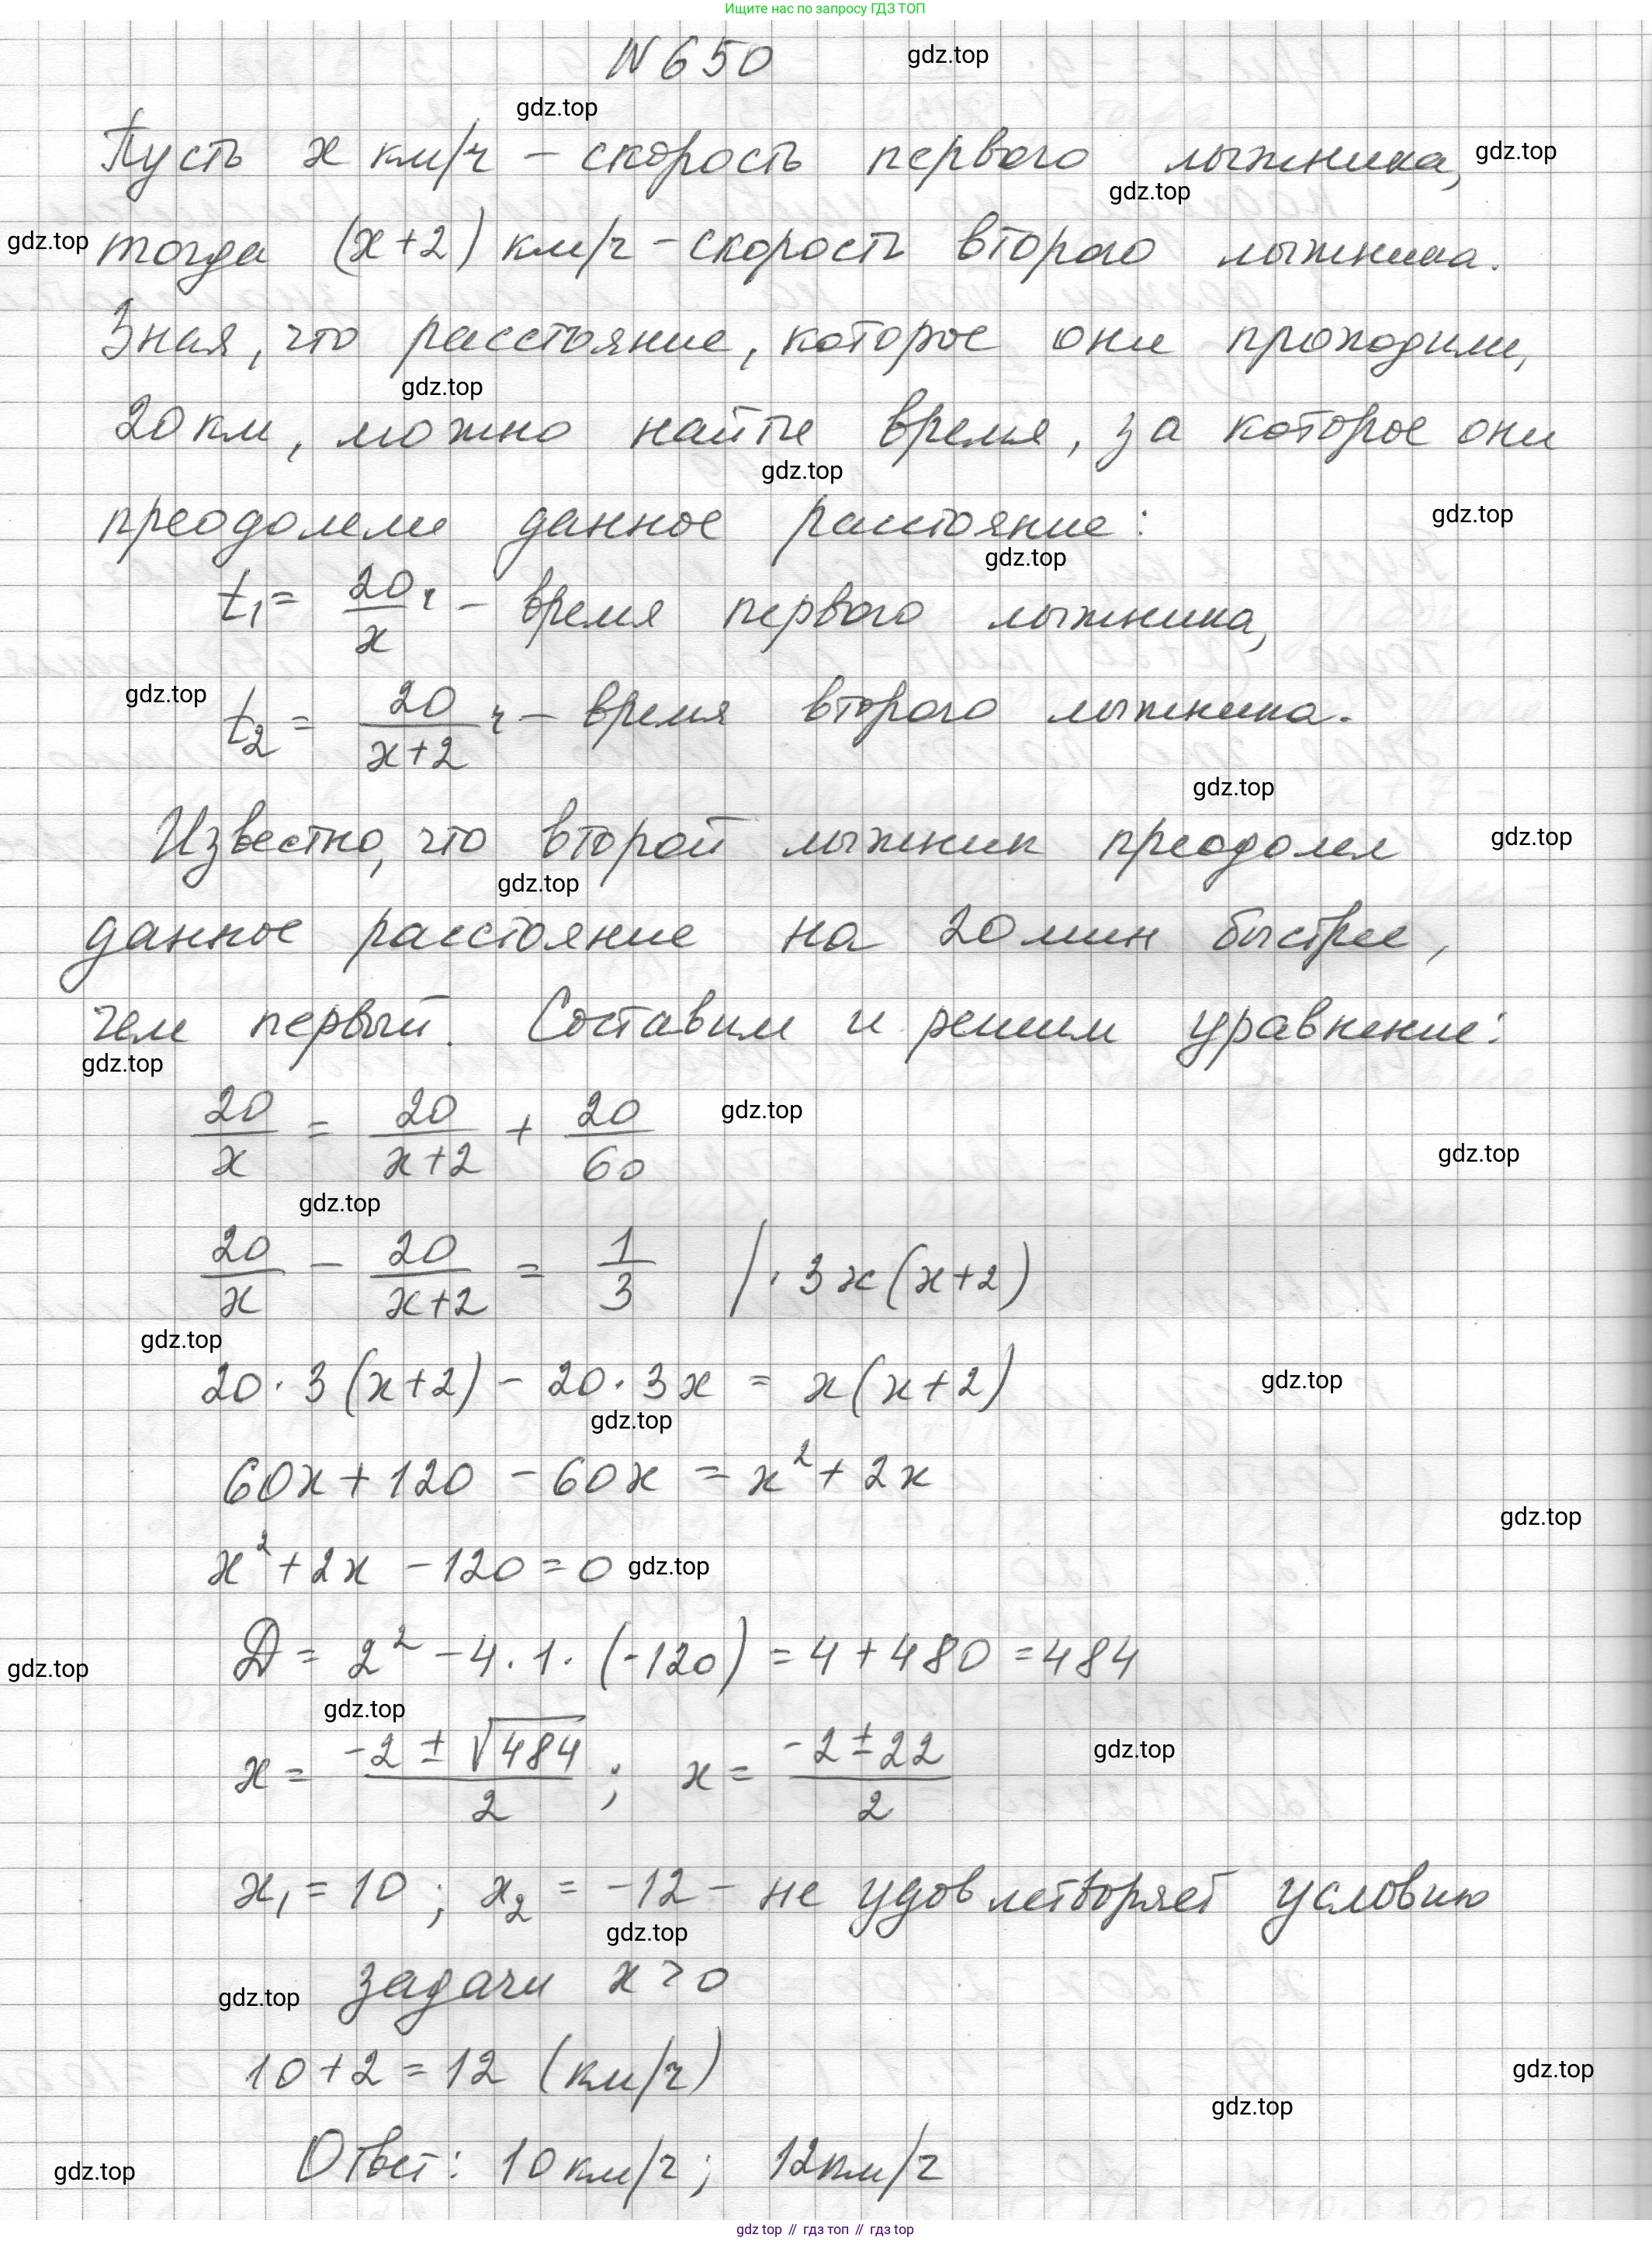 Ищите нас по запросу ГДЗ ТОП
N 650 gdz.top
gdz.top
Пусть x км/ч – скорость первого лыжника, gdz.top
gdz.top
gdz.top тогда (x+2) км/ч – скорость второго лыжника.
Зная, что расстояние, которое они проходили,
gdz.top
20 км, можно найти время, за которое они
gdz.top
преодолели данное расстояние: gdz.top
gdz.top
t₁ = 20/x ч – время первого лыжника,
gdz.top t₂ = 20/(x+2) ч – время второго лыжника.
gdz.top
Известно, что второй лыжник преодолел gdz.top
gdz.top
данное расстояние на 20 мин быстрее,
чем первый. Составим и решим уравнение:
gdz.top
20/x = 20/(x+2) + 20/60 gdz.top
gdz.top
gdz.top
20/x – 20/(x+2) = 1/3 /· 3x(x+2)
gdz.top
20·3(x+2) – 20·3x = x(x+2) gdz.top
gdz.top
60x + 120 – 60x = x² + 2x
gdz.top
x² + 2x – 120 = 0 gdz.top
gdz.top D = 2² – 4·1·(-120) = 4 + 480 = 484
gdz.top
x = (-2 ± √484)/2 ; x = (-2 ± 22)/2 gdz.top
x₁ = 10 ; x₂ = -12 – не удовлетворяет условию
gdz.top
gdz.top задачи x > 0
10 + 2 = 12 (км/ч) gdz.top
gdz.top
gdz.top Ответ: 10 км/ч; 12 км/ч
gdz top // гдз топ // гдз top